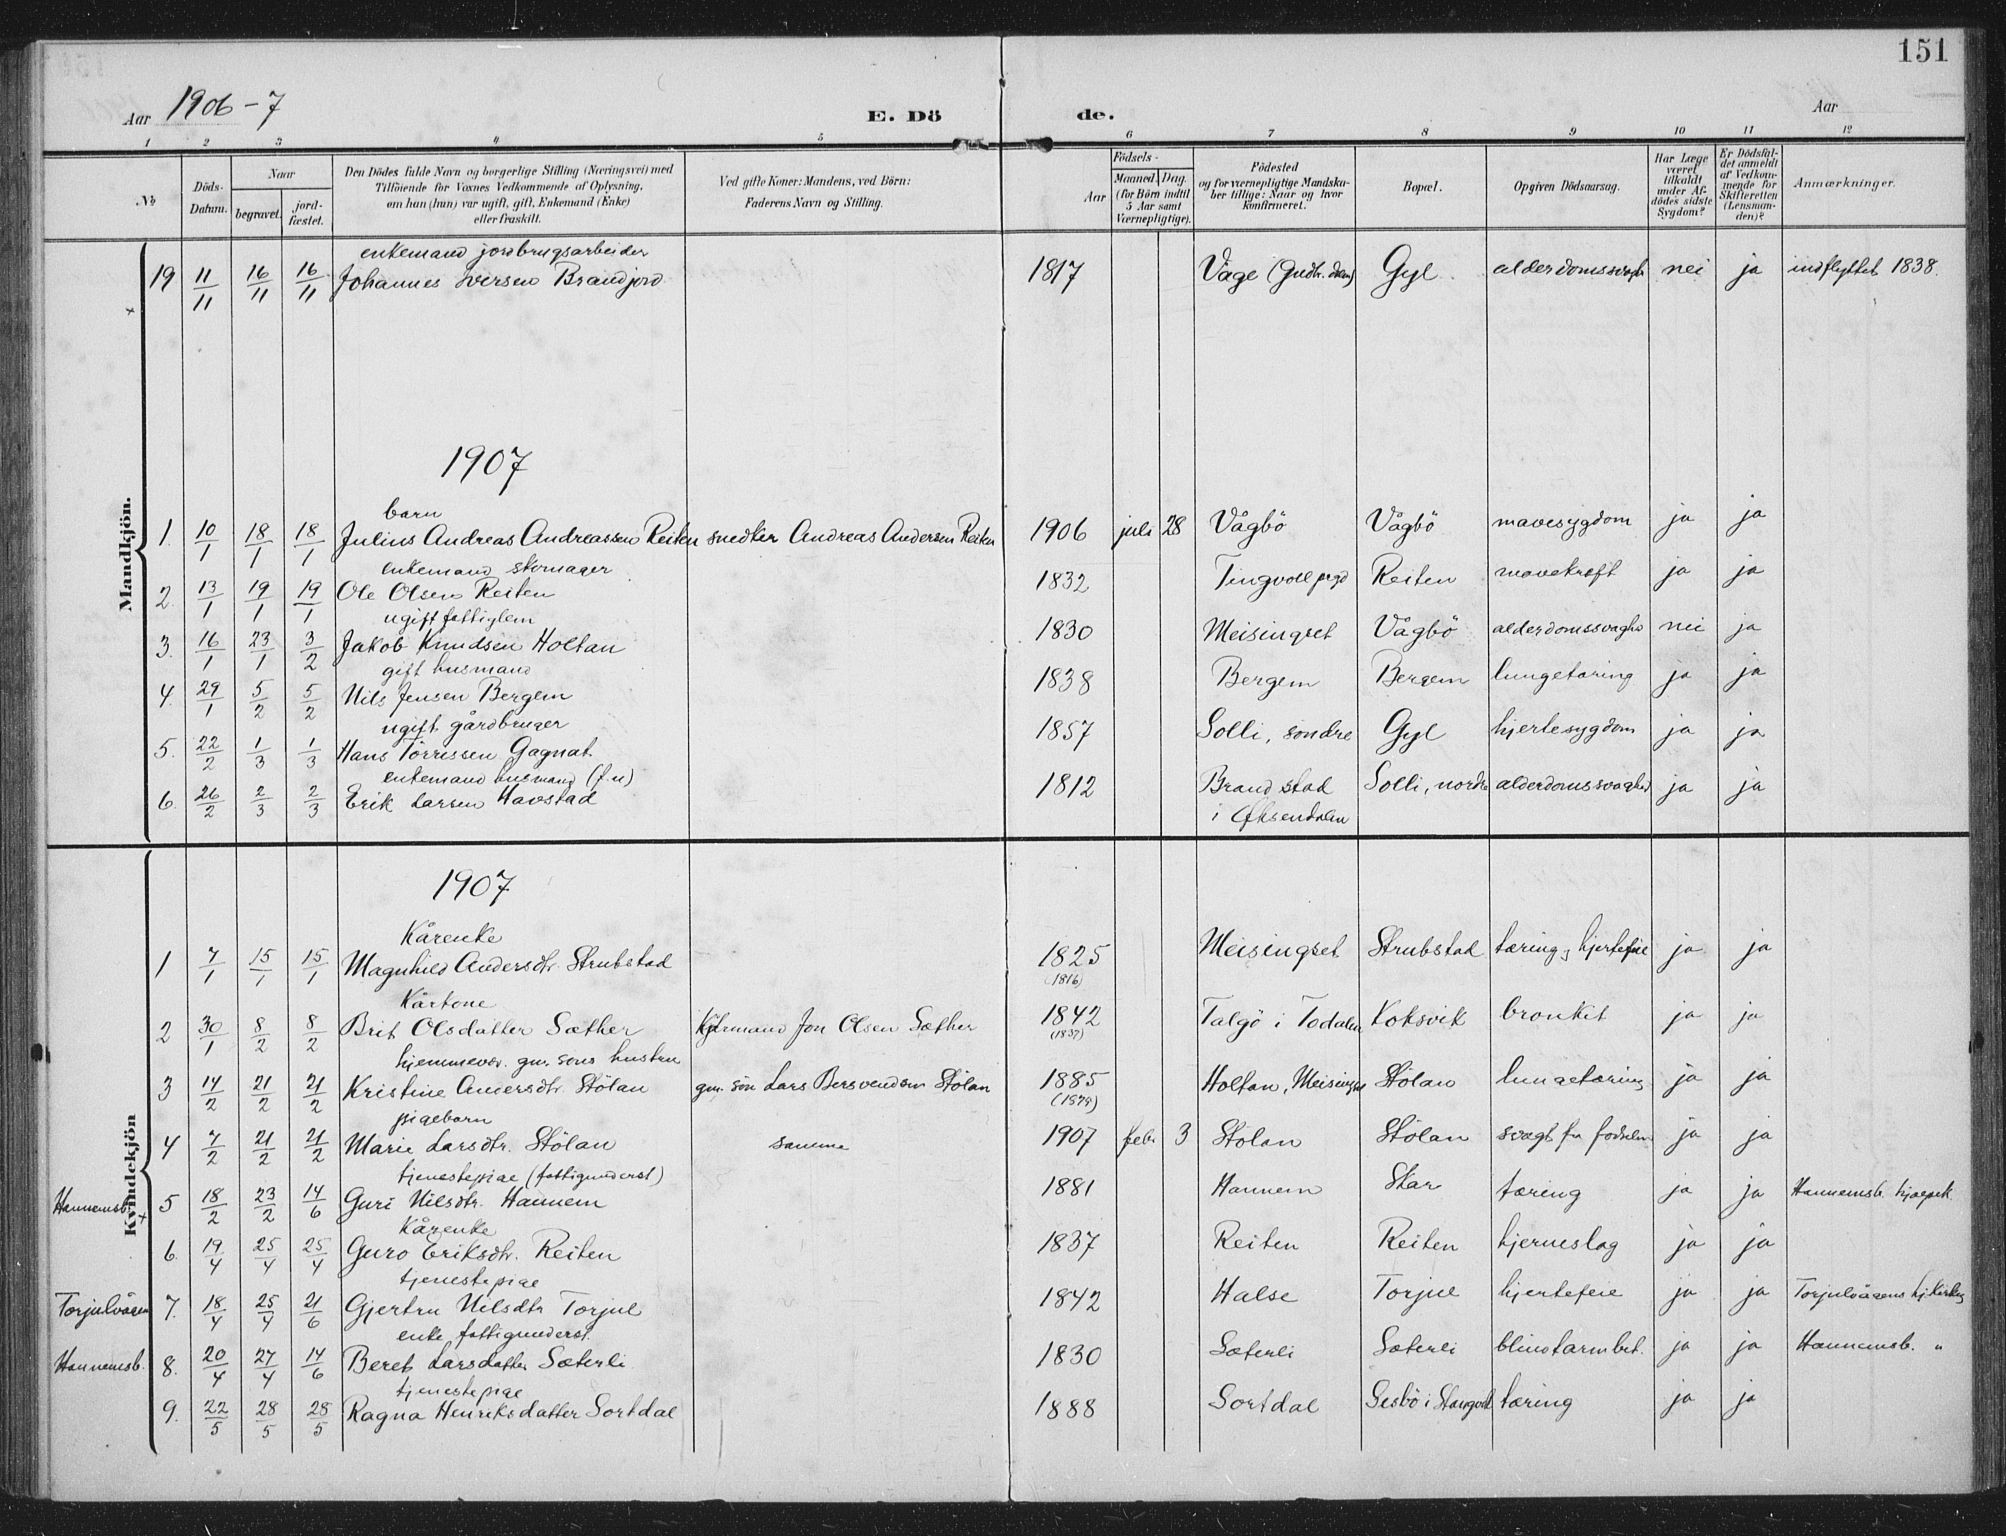 151
Aar 1906-7 E. Dö de. Aar
1 2 3 4 5 6 7 8 9 10 11 12
No
Döds-Datum.
Naar
begravet.
jord-fæstet.
Den Dödes fulde Navn og borgerlige Stilling (Næringsvei) med
Tilföiende for Voxnes Vedkommende af Oplysning,
om han (hun) var ugift, gift, Enkemand (Enke)
eller fraskilt.
Ved gifte Koner: Mandens, ved Börn:
Faderens Navn og Stilling.
Födsels-
Aar
Maaned. Dag.
(for Börn indtil
5 Aar samt
Værnepligtige).
Födested
og for værnepligtige Mandska-
ber tillige: Naar og hvor
konfirmeret.
Bopæl.
Opgiven Dödsaarsag.
Har Læge
været
tilkaldt
under Af-
dödes sidste
Sygdom?
Er Dödsfal-
det anmeldt
af Vedkom-
mende for
Skifteretten
(Lensman-
den)?
Anmærkninger.
Mandkjön.
enkemand jordbrugsarbeider
19 11/11 16/11 16/11 Johannes Iversen Brandjord 1817 Våge (Gudbr. dalen) Gyl alderdomssvagh nei ja indflyttet 1838.
1907
barn
1. 10/1 18/1 18/1 Julius Andreas Andreassen Reiten snedker Andreas Andersen Reiten 1906 juli 28 Vågbö Vågbö mavesygdom ja ja
enkemand skomager
2. 13/1 19/1 19/1 Ole Olsen Reiten 1832 Tingvoll prgd Reiten mavekræft ja ja
ugift fattiglem
3. 16/1 23/1 3/2 Jakob Knudsen Holtan 1830 Meisingset Vågbö alderdomssvaghd nei ja
gift husmand
4. 29/1 5/2 5/2 Nils Jensen Bergem 1838 Bergem Bergem lungetæring ja ja
ugift gårdbruger
5. 22/2 1/3 1/3 Hans Törrissen Gagnat 1857 Solli, söndre Gyl hjertesygdom ja ja
enkemand husmand (f.u)
6. 26/2 2/3 2/3 Erik Larsen Havstad 1812 Brandstad Solli, nordre alderdomssvaghed ja ja
i Øksendalen
Kvindekjön
1907
Kårenke
1 7/1 15/1 15/1 Magnhild Andersdtr. Strubstad 1825 Meisingset Strubstad tæring, hjertefeil ja ja
(1816)
Kårkone
2 30/1 8/2 8/2 Brit Olsdatter Sæther Kårmand Jon Olsen Sæther 1842 Talgö i Todalen Koksvik bronkit ja ja
(1837)
hjemmevær. gm. söns hustru
3 14/2 21/2 21/2 Kristine Andersdtr. Stölan gm. sön Lars Bersvendsen Stölan 1885 Holtan, Meisingset Stölan lungetæring ja ja
pigebarn
4 7/2 21/2 21/2 Marie Larsdtr. Stölan samme 1907 febr 3 Stölan Stölan svagt fra födselen ja ja
tjenestepige (fattigunderst)
Hannemsb. 5 18/2 23/2 14/6 Guri Nilsdtr. Hannem 1881 Hannem Skar tæring ja ja Hannemsb. hjælpek.
Kårenke
6. 19/4 25/4 25/4 Guro Eriksdtr. Reiten 1837 Reiten Reiten hjerneslag ja ja
tjenestepige
Torjulvågen 7. 18/4 25/4 21/6 Gjertru Nilsdtr Torjul 1842 Halse Torjul hjertefeil ja ja Torjulvågens hj. kirkeg
enke fattigunderst.
Hannemsb. 8. 20/4 27/4 14/6 Beret Larsdatter Sæterli 1830 Sæterli Sæterli blindtarmbet. ja ja Hannemsb. "
tjenestepige
9. 22/5 28/5 28/5 Ragna Henriksdatter Sortdal 1888 Sortdal Sesbö i Stangvik tæring ja ja